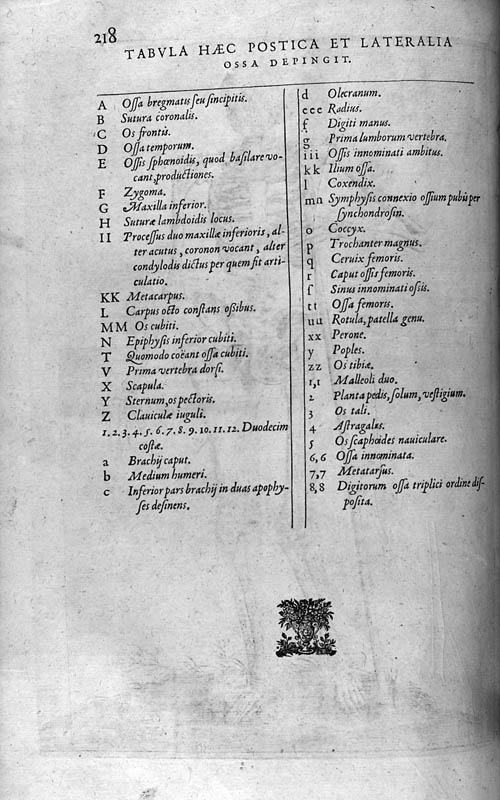 218
TABVLA HÆC POSTICA ET LATERALIA
OSSA DEPINGIT.
A Oſſa bregmatis ſeu ſincipitis.
B Sutura coronalis.
C Os frontis.
D Oſſa temporum.
E Oſſis ſphœnoidis, quod baſilare vo-
cant, productiones.
F Zygoma.
G Maxilla inferior.
H Suturæ lambdoidis locus.
II Proceſſus duo maxillæ inferioris, al-
ter acutus, coronon vocant, alter
condylodis dictus per quem fit arti-
culatio.
KK Metacarpus.
L Carpus octo conſtans oſſibus.
MM Os cubiti.
N Epiphyſis inferior cubiti.
T Quomodo coëant oſſa cubiti.
V Prima vertebra dorſi.
X Scapula.
Y Sternum, os pectoris.
Z Clauiculæ iuguli.
1. 2. 3. 4. 5. 6. 7. 8. 9. 10. 11. 12. Duodecim
coſtæ.
a Brachij caput.
b Medium humeri.
c Inferior pars brachij in duas apophy-
ſes deſinens.
d Olecranum.
eee Radius.
f Digiti manus.
g Prima lumborum vertebra.
iii Oſſis innominati ambitus.
kk Ilium oſſa.
l Coxendix.
mn Symphyſis connexio oſſium pubis per
ſynchondroſin.
o Coccyx.
p Trochanter magnus.
q Ceruix femoris.
r Caput oſſis femoris.
ſ Sinus innominati oſsis.
tt Oſſa femoris.
uu Rotula, patella genu.
xx Perone.
y Poples.
zz Os tibiæ.
1,1 Malleoli duo.
2 Planta pedis, ſolum, veſtigium.
3 Os tali.
4 Aſtragalus.
5 Os ſcaphoides nauiculare.
6,6 Oſſa innominata.
7,7 Metatarſus.
8,8 Digitorum oſſa triplici ordine diſ-
poſita.